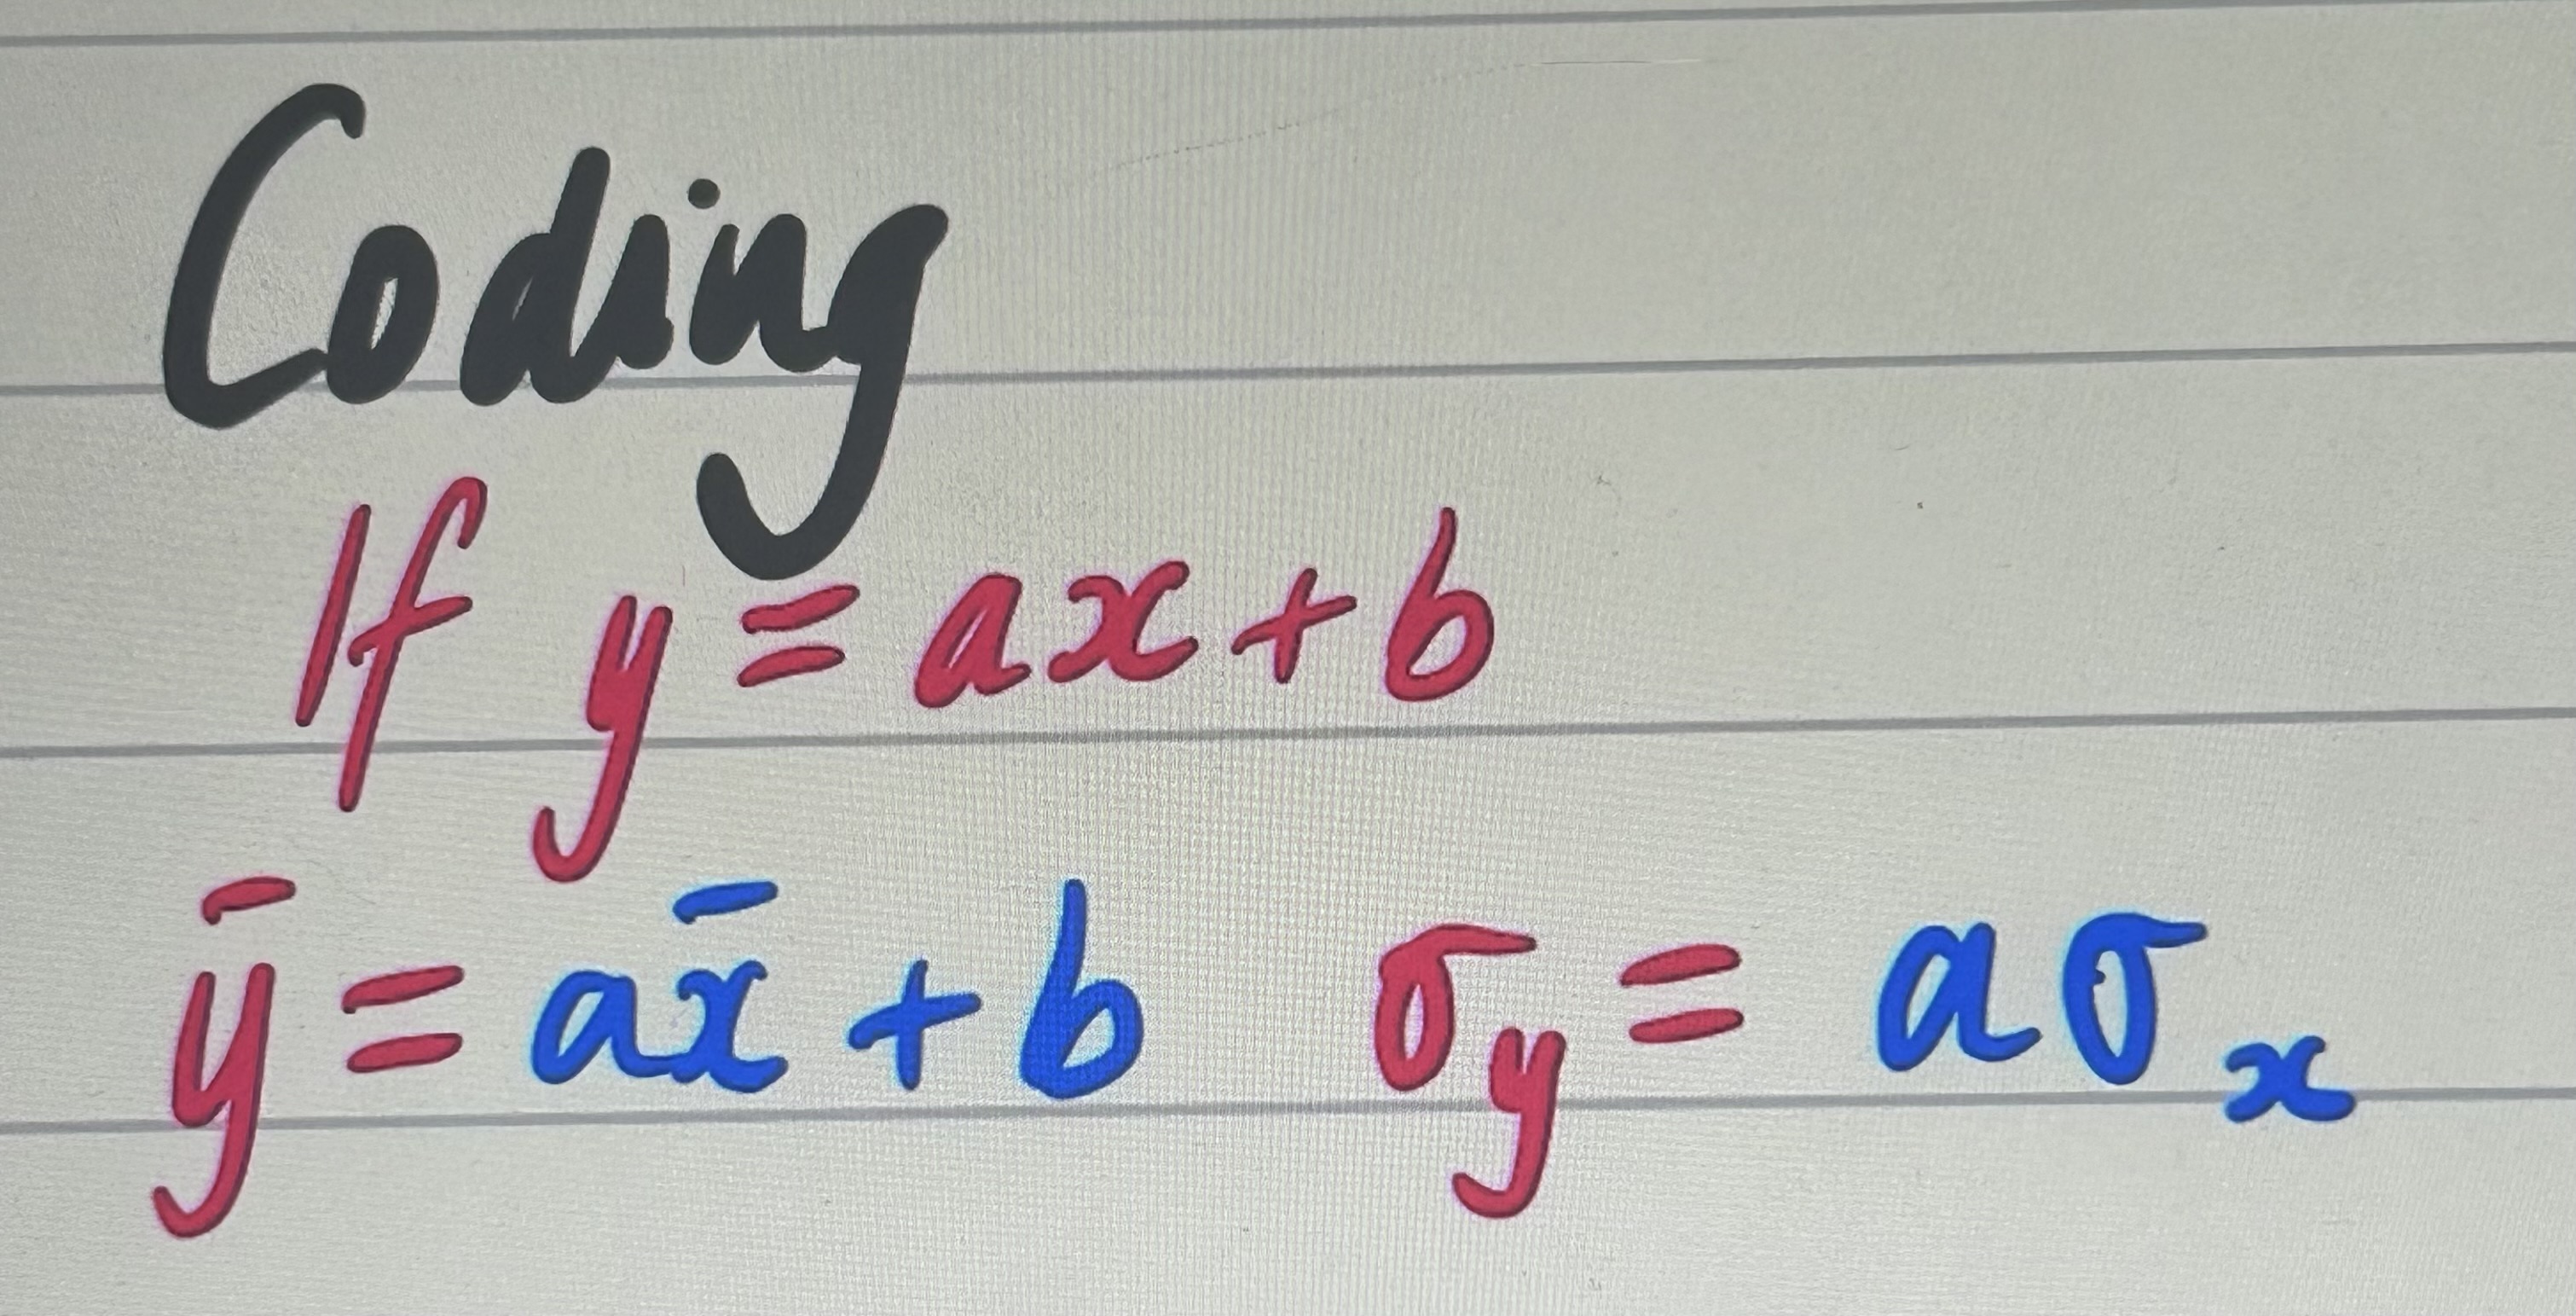 Coding
If y = ax + b
ȳ = ax̄ + b σy = aσx